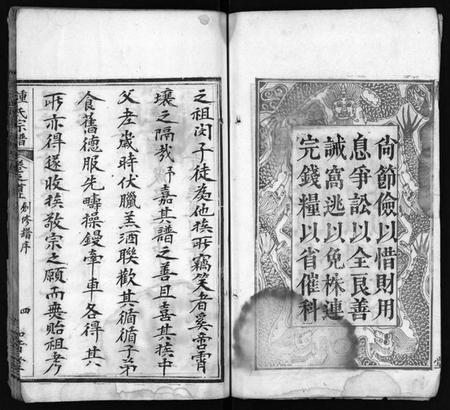 尚節儉以惜財用
息爭訟以全良善
誡窩逃以免株連
完錢糧以省催科
之祖閔子徒為他族所竊笑者奚啻霄
壤之隔哉予嘉其譜之善且喜其族中
父老歲時伏臘羔酒聯歡其循循子弟
食舊德服先疇操鏝牽車各得其
所亦得遂收族敬宗之願而無貽祖考
鍾氏宗譜 卷之首 創修譜序 四